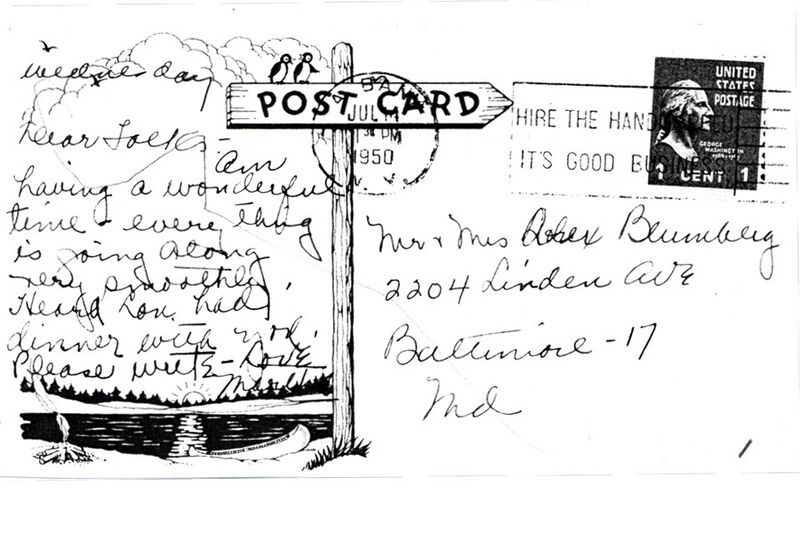 Wednesday
Dear Folks -
Am
having a wonderful
time - every thing
is going along
very smoothly.
Heard Lou had
dinner with you.
Please write - Love
POST CARD
JUL
PM
1950
N. Y.
HIRE THE HANDICAPPED
IT'S GOOD BUSINESS
UNITED
STATES
POSTAGE
GEORGE
WASHINGTON
1 CENT 1
Mr & Mrs Alex Blumberg
2204 Linden AVE
Baltimore - 17
Md